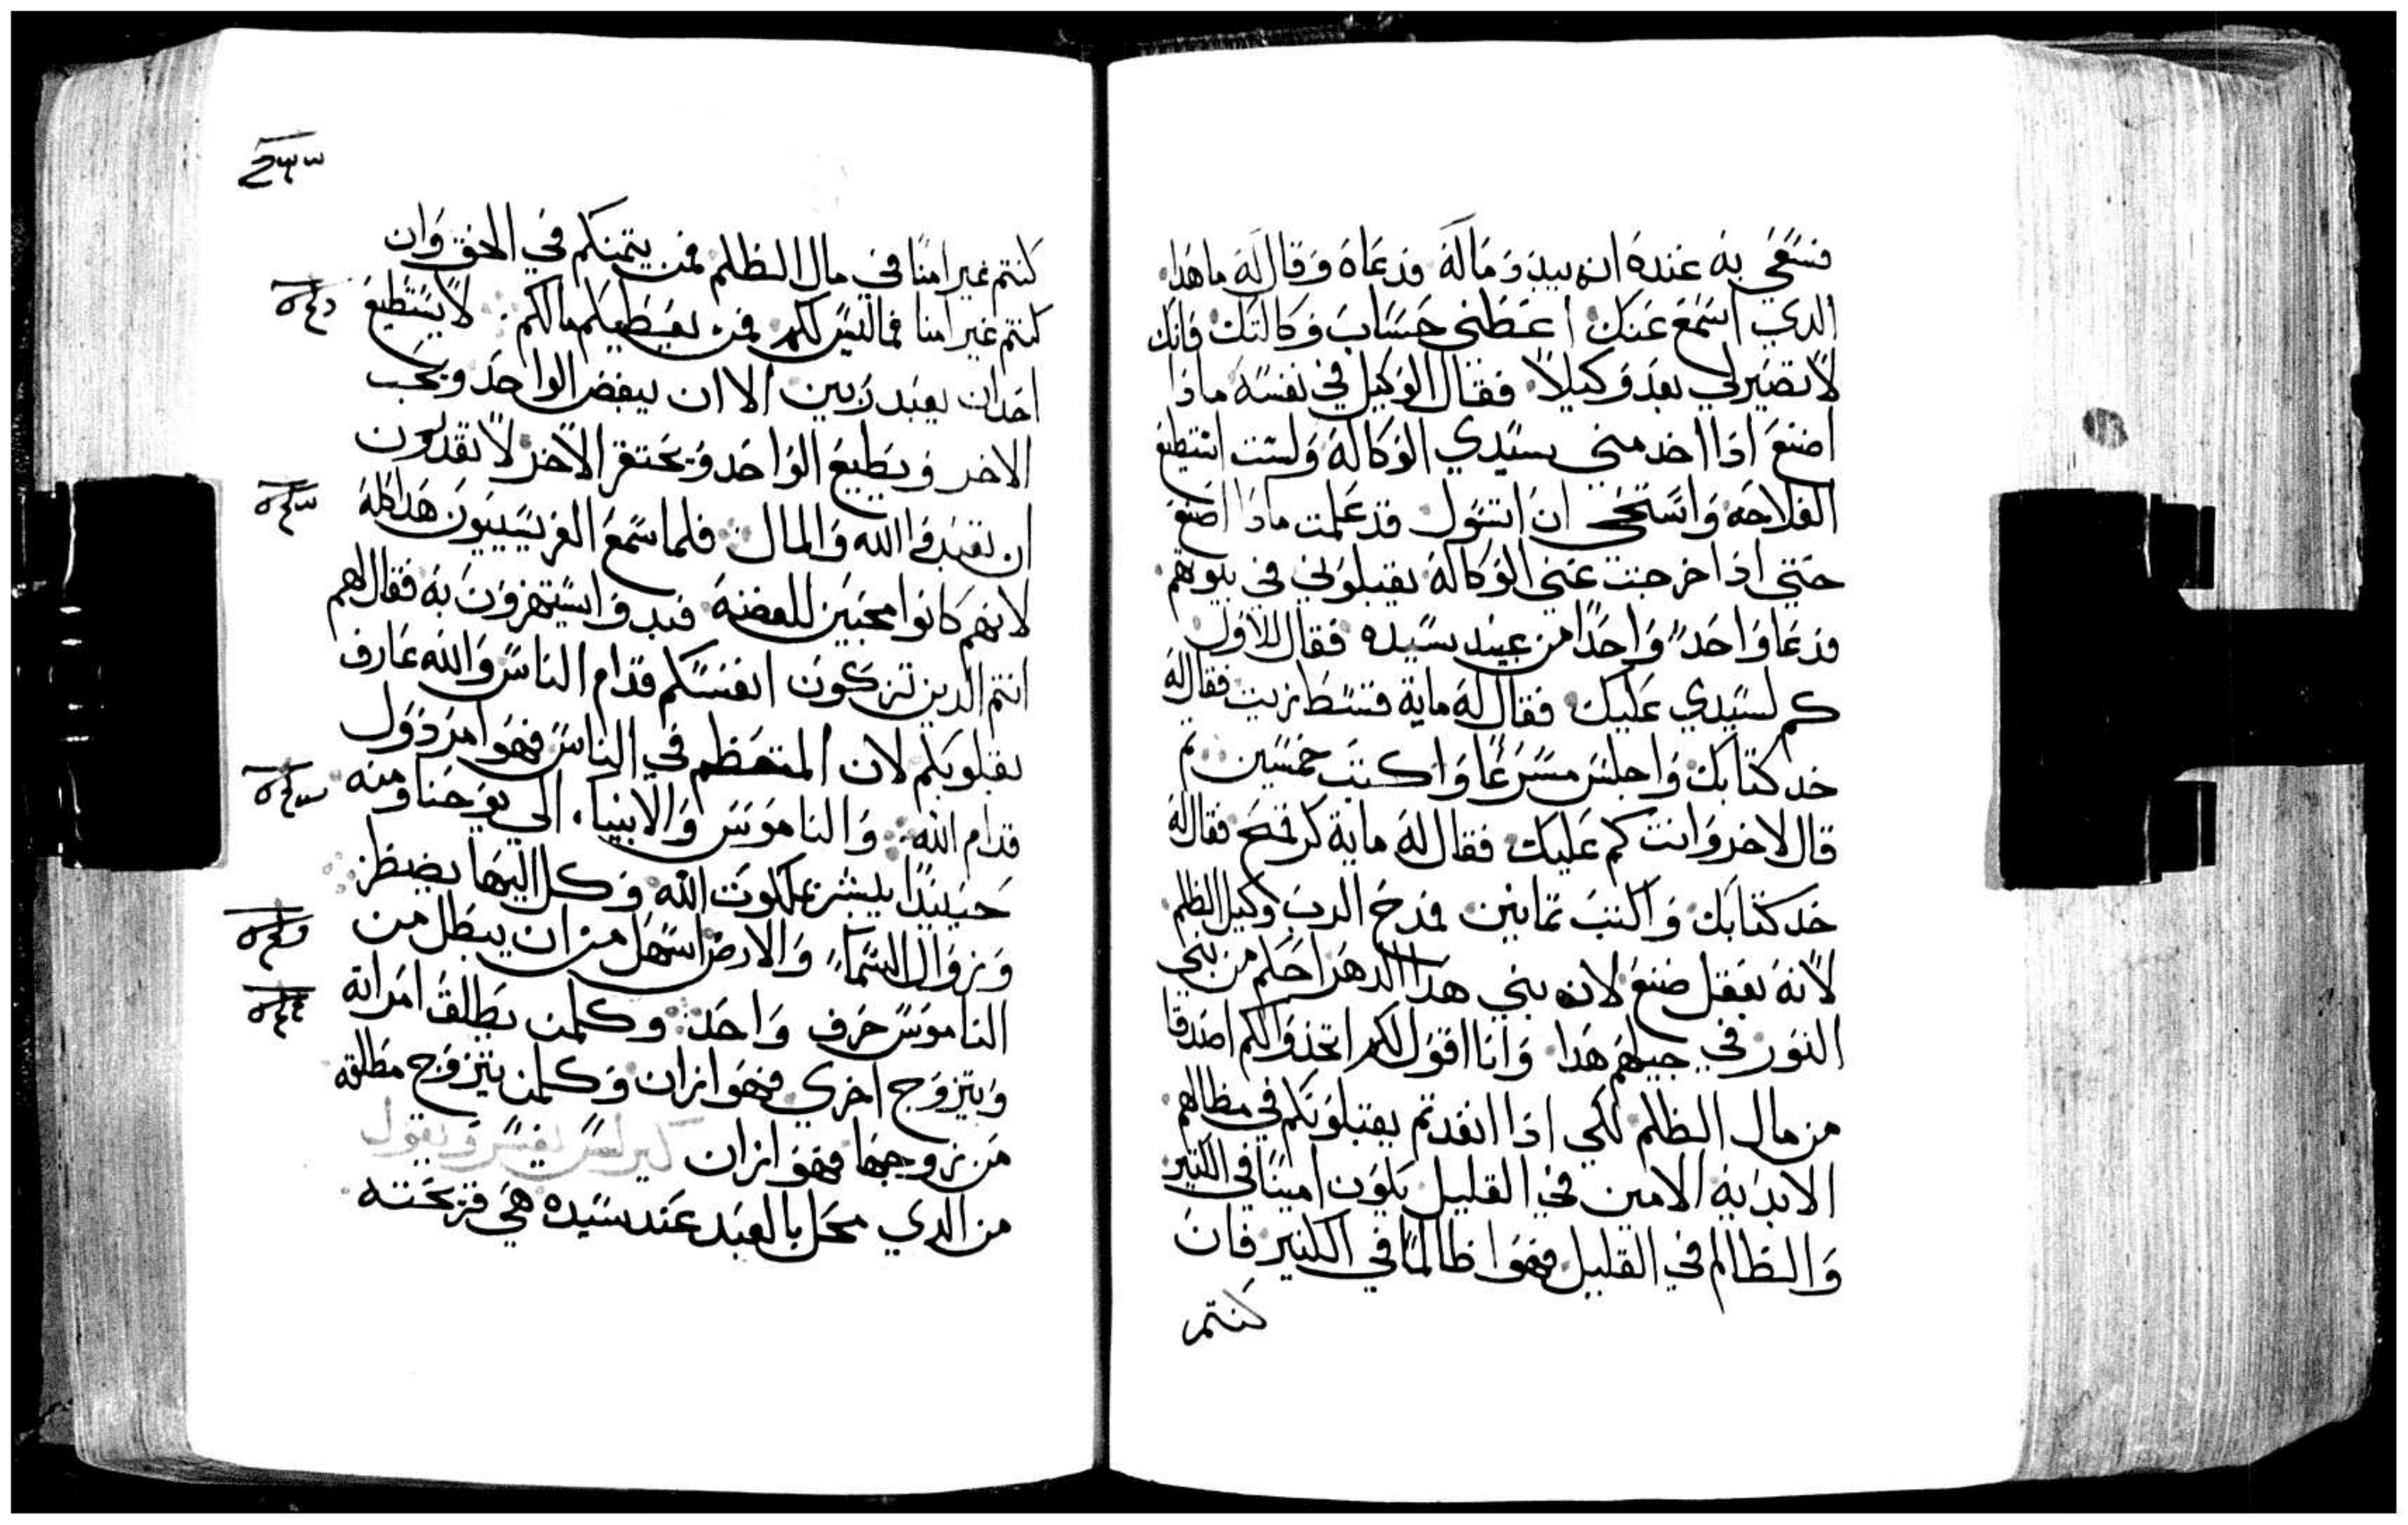 فسعي به عنده انه يبدد ماله فدعاه وقال له ما هدا
الدي اسمع عنك اعطني حساب وكالتك فانك
لا تصير لي بعد وكيلا فقال الوكيل في نفسه ما ذا
اصنع اذا اخد مني سيدي الوكالة ولست استطيع
الفلاحه واستحي ان اتسول قد علمت ماذا اصنع
حتي اذا خرجت عني الوكالة يقبلوني في بيوتهم
فدعا واحدا واحدا من عبيد سيده فقال للاول
كم لسيدي عليك فقال له ماية قسط زيت فقال له
خد كتابك واجلس مسرعا واكتب خمسين تم
قال لاخر وانت كم عليك فقال له ماية كر قمح فقال له
خد كتابك واكتب تمانين فمدح الرب وكيل الظلم
لانه بعقل صنع لان بني هدا الدهر احكم من بني
النور في جيلهم هدا وانا اقول لكم اتخذوا لكم اصدقا
من مال الظلم لكي اذا انفدتم يقبلونكم في مظالهم
الابدية الامين في القليل يكون امينا في الكتير
والظالم في القليل فهوا ظالما في الكتير فان
كنتم
كنتم غير امنا في مال الظلم فمن يتمنكم في الحق وان
كنتم غير امنا فما ليس لكم فمن يعطيكم مالكم لا يستطيع
احدا ان يعبد ربين الا ان يبغض الواحد ويحب
الاخر ويطيع الواحد ويحتقر الاخر لا تقدرون
ان تعبدوا الله والمال فلما سمع الفريسيون هدا كله
لانهم كانوا محبين للفضه فبدوا يستهزون به فقال لهم
انتم الدين تزكون انفسكم قدام الناس والله عارف
بقلوبكم لان المتعظم في الناس فهوا مردول
قدام الله والناموس والانبيا الي يوحنا ومنه
حينيدا يبشر بملكوت الله وكل اليها يضطر
وزوال السما والارض اسهل من ان يبطل من
الناموس حرف واحد وكلمن يطلق امراته
ويتزوج اخري فهوا زان وكلمن يتزوج مطلقه
من زوجها فهوا زان
من الدي محل بالعبد عند سيده هي قريحته